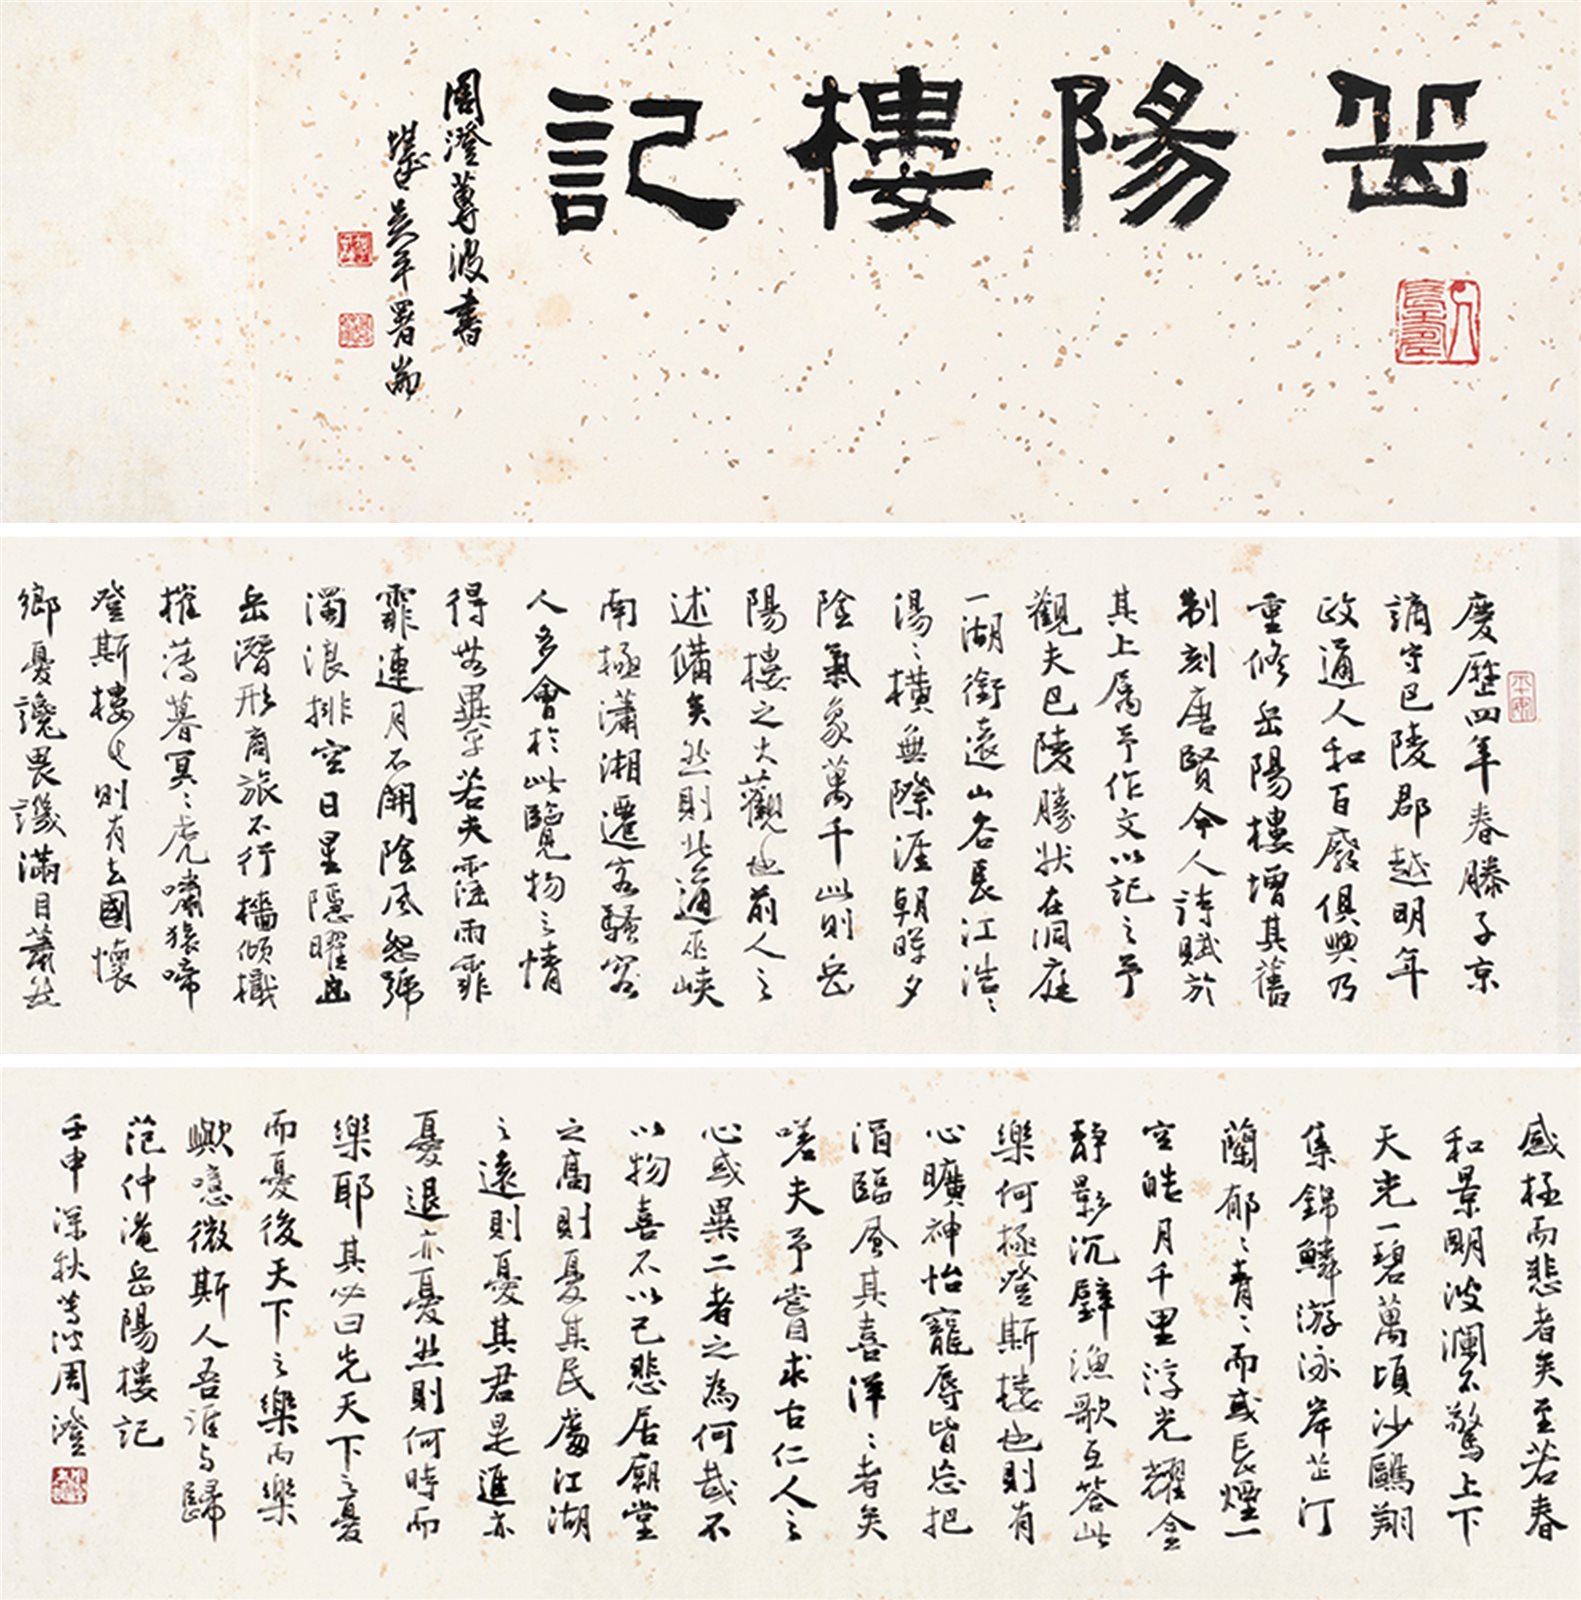 岳陽樓記
周澄蓴波書
吳平署耑
慶歷四年春滕子京
謫守巴陵郡越明年
政通人和百廢俱興乃
重修岳陽樓增其舊
制刻唐賢今人詩賦於
其上屬予作文以記之予
觀夫巴陵勝狀在洞庭
一湖銜遠山吞長江浩〻
湯〻橫無際涯朝暉夕
陰氣象萬千此則岳
陽樓之大觀也前人之
述備矣然則北通巫峽
南極瀟湘遷客騷客
人多會於此覽物之情
得無異乎若夫霪雨霏
霏連月不開陰風怒號
濁浪排空日星隱曜山
岳潛形商旅不行檣傾檝
摧薄暮冥〻虎嘯猿啼
登斯樓也則有去國懷
鄉憂讒畏譏滿目蕭然
感極而悲者矣至若春
和景明波瀾不驚上下
天光一碧萬頃沙鷗翔
集錦鱗游泳岸芷汀
蘭郁〻青〻而或長煙一
空皓月千里浮光耀金
靜影沉璧漁歌互答此
樂何極登斯樓也則有
心曠神怡寵辱皆忘把
酒臨風其喜洋〻者矣
嗟夫予嘗求古仁人之
心或異二者之為何哉不
以物喜不以己悲居廟堂
之高則憂其民處江湖
之遠則憂其君是進亦
憂退亦憂然則何時而
樂耶其必曰先天下之憂
而憂後天下之樂而樂
歟噫微斯人吾誰与歸
范仲淹岳陽樓記
壬申深秋蓴波周澄